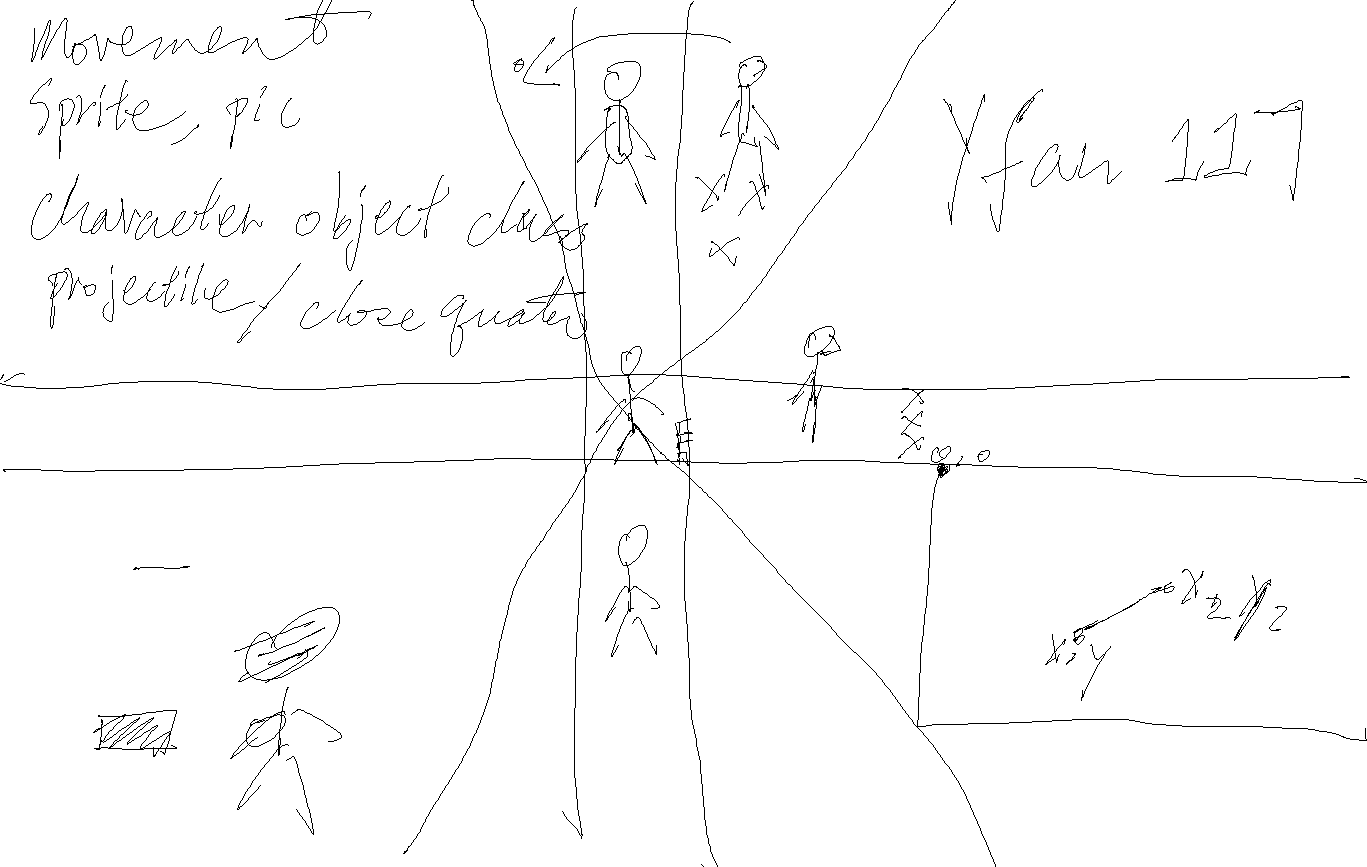 Movement
Sprite, pic
character object class
projectile / close quater
Yfan 117
x x
x
x
x
x
0, 0
x2 y2
x, y